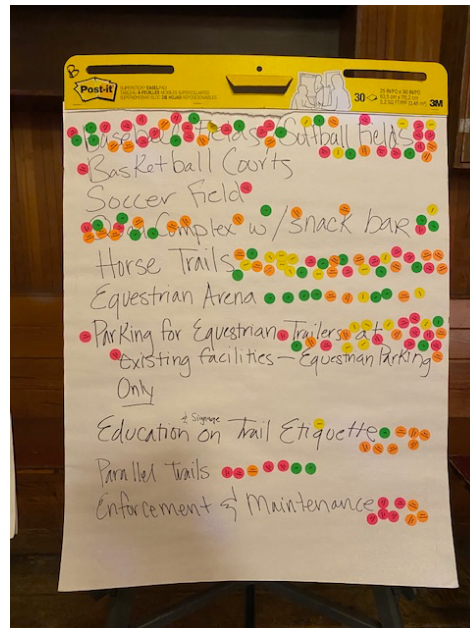 B
Post-it
30
3M
Baseball Fields/Softball Fields
Basketball Courts
Soccer Field
Quad Complex w/ Snack bar
Horse Trails
Equestrian Arena
Parking for Equestrian Trailers at
existing facilities — Equestrian Parking
Only
& Signage
Education on Trail Etiquette
Parallel Trails
Enforcement & Maintenance